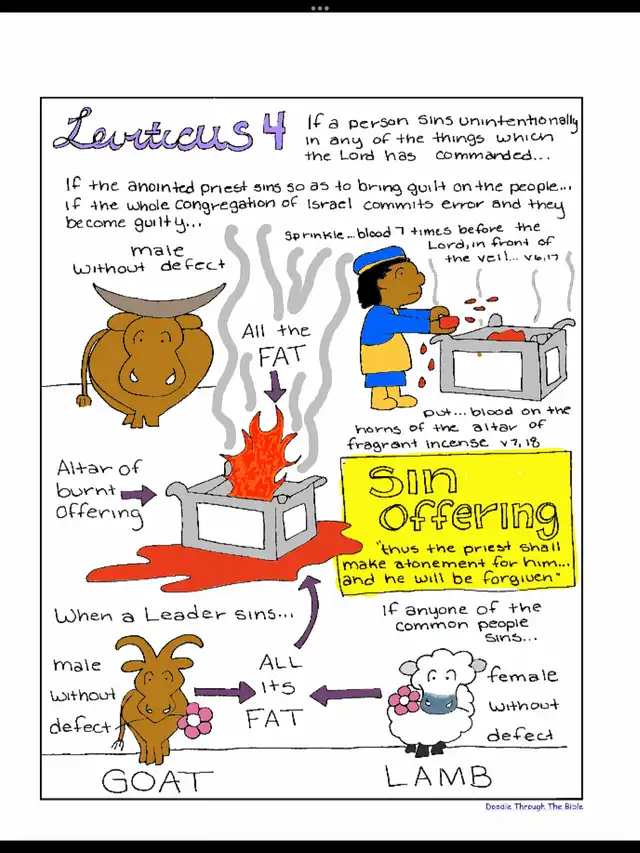 Leviticus 4
If a person sins unintentionally
in any of the things which
the Lord has commanded...
If the anointed priest sins so as to bring guilt on the people...
if the whole congregation of Israel commits error and they
become guilty...
sprinkle...blood 7 times before the
Lord, in front of
the veil... v6,17
male
without defect
All the
FAT
put... blood on the
horns of the altar of
fragrant incense v7,18
Altar of
burnt
offering
Sin
Offering
"thus the priest shall
make atonement for him...
and he will be forgiven"
When a Leader sins...
If anyone of the
common people
sins...
male
without
defect
ALL
its
FAT
female
without
defect
GOAT
LAMB
Doodle Through The Bible